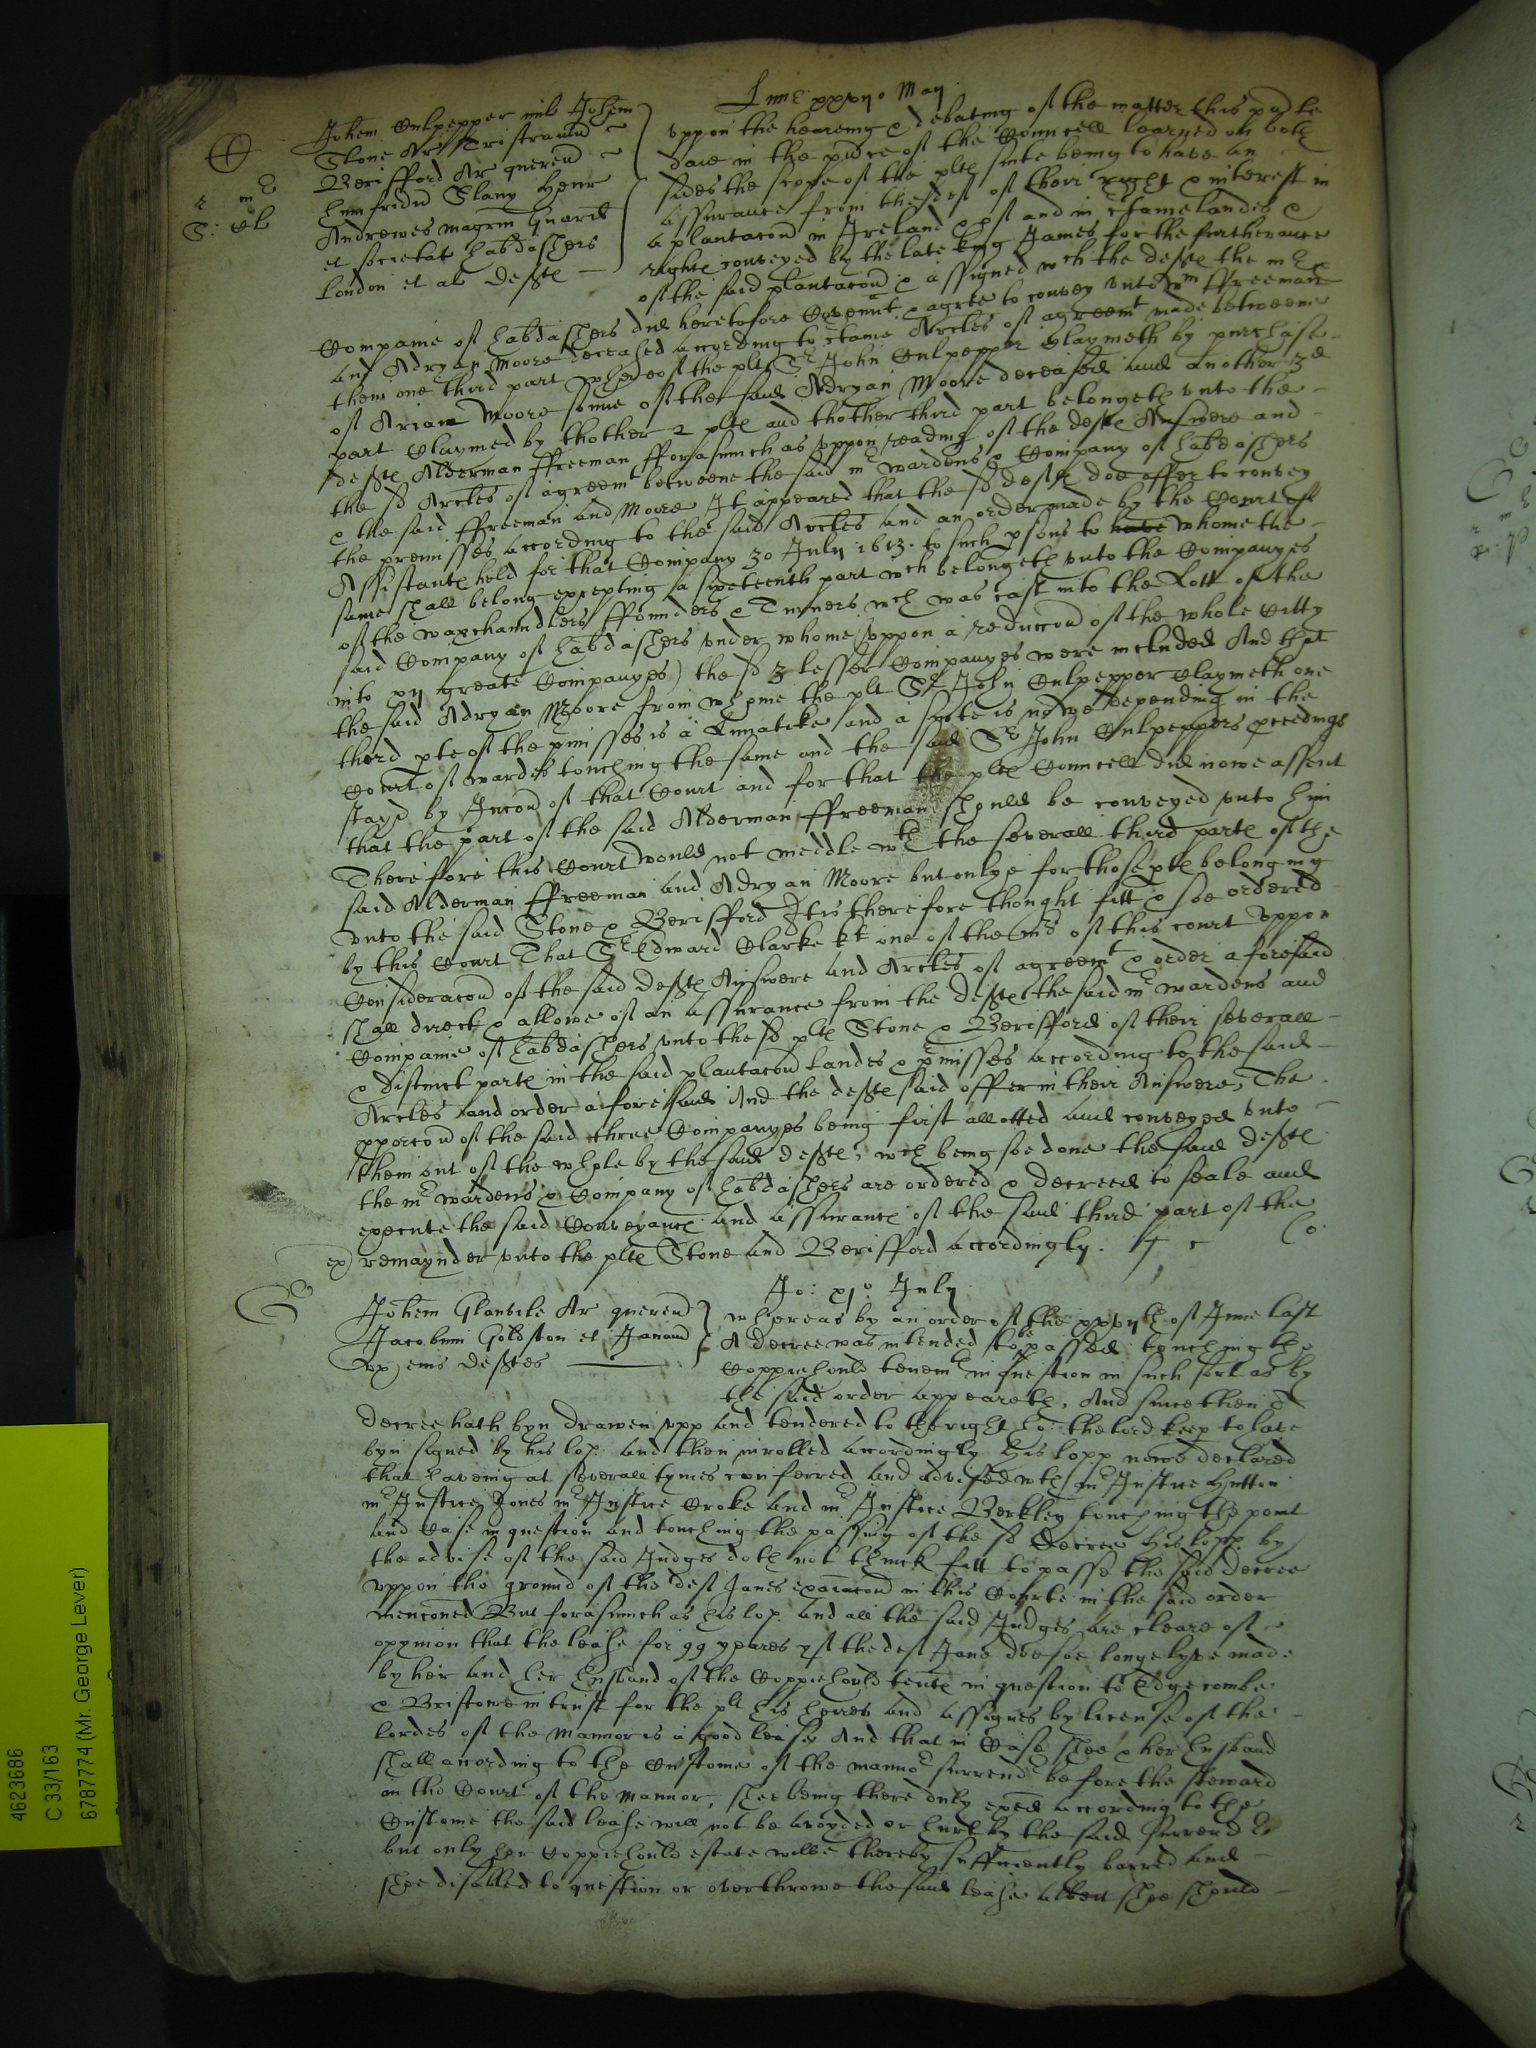 Lune xxvijo Maij
Johem Culpepper mil Johem
Stone Ar Tristramu
Berisfford Ar querend
Humfridu Slany Henr
Andrewes magrm Guardi
et societat Habdashers
London et al Defte
Uppon the heareing & debating of the matter this p'nte
daie in the p'nce of the Councell learned on both
sides the scope of the plts suite being to have an
assurance from the deft of their right & interest in
a plantacon in Ireland & of and in c'tame landes &
rights conveyed by the late king James for the furtherance
of the said plantacon & assigned wch the defts the mr &
Companie of Habdashers did heretofore Covennt & agree to convey unto Wm ffreeman
and Adryan Moore deceased according to c'tame Arcles of agreemt made betweene
them one third part whereof the plt Sr John Culpepper Claymeth by purchase
of Arian Moore sonne of the said Adryan Moore deceased and another 3d
part Claymed by thother 2 plts and thother third part belongeth unto the
deft Alderman ffreeman fforasmuch as uppon reading of the defts Answere and
the sd Arcles of agreemt betweene the said mr wardens & Company of Habdashers
& the said ffreeman and Moore It appeared that the sd defts doe offer to convey
the premisses according to the said Arcles and an order made by the Court of
Assistants held for that Company 30 July 1613. to such p'sons to whome the
same shall belong excepting a sixteenth part wch belongeth unto the Companyes
of the waxchaundlers ffounders & Turners wch was cast into the Lott of the
said Company of Habdashers under whome (uppon a reduccon of the whole Citty
into xij greate Companyes) the sd 3 lesser Companyes were included And that
the said Adryan Moore from whome the plt Sr John Culpepper Claymeth one
third p'te of the p'misses is a Lunaticke and a suite is nowe depending in the
Court of wardes touching the same and the said Sr John Culpeppers p'ceedings
stayd by Iniccon of that Court and for that the plts Councell did nowe assent
that the part of the said Alderman ffreeman should be conveyed unto him
Therefore this Court would not meddle wth the severall third parts of the
said Alderman ffreeman and Adryan Moore but onlye for those pts belonging
unto the said Stone & Berisfford It is therefore thought fitt & soe ordered
by this Court That Sr Edward Clarke kt one of the mrs of this court uppon
Consideracon of the said defts Answere and Arcles of agreemt & order aforesaid
shall direct & allowe of an assurance from the defts the said mr wardens and
Companie of Habdashers unto the sd plts Stone & Berisfford of their severall
& distinct parts in the said plantacon landes & p'misses according to the said
Arcles and order aforesaid And the defts said offer in their Answere, The
p'porcon of the said three Companyes being first allotted and conveyed unto
them out of the whole by the said defts, wch being soe done the said defts
the mr wardens & Company of Habdashers are ordered & decreed to seale and
execute the said Conveyance and assurance of the said third part of the
remaynder unto the plts Stone and Berisfford accordingly.
Jo: xio July
Johem Glanvile Ar querend
Jacobum Goldston et Janam
ux eius Deftes
Whereas by an order of the xxvijth of June last
A decree was intended to be passed touching the
Coppiehould tenemt in question in such sort as by
the said order appeareth, And since then a
decree hath byn drawen upp and tendered to the right ho: the lord keep to have
byn signed by his lop. and then inrolled accordingly his lopp nowe declared
that haveing at severall tymes conferred and advised wth mr Justice Hutton
mr Justice Jones mr Justice Croke and mr Justice Berkley touching the point
and Case in question and touching the passing of the sd decree his lopp. by
the advise of the said Judges doth not thinck fitt to passe the said decree
uppon the ground of the deft Janes exaiacon in this Courte in the said order
menconed But forasmuch as his lop. and all the said Judges are cleare of
opynion that the lease for 99 yeares yf the deft Jane doe soe longe lyve made
by her and her husband of the Coppiehould tents in question to Edgecombe
& Bristowe in trust for the plt his heires and assignes by license of the
lordes of the Mannor is a good lease And that in Case shee & her husband
shall according to the Custome of the mannor surrendr before the steward
in the Court of the Mannor, shee being there duly exaied according to the
Custome the said lease will not be avoyded or hurt by the said surrendr
but only her Coppiehould estate wilbe thereby sufficiently barred and
shee disabled to question or overthrowe the said lease albeit shee should
4623686
C 33/163
6787774 (Mr. George Lever)